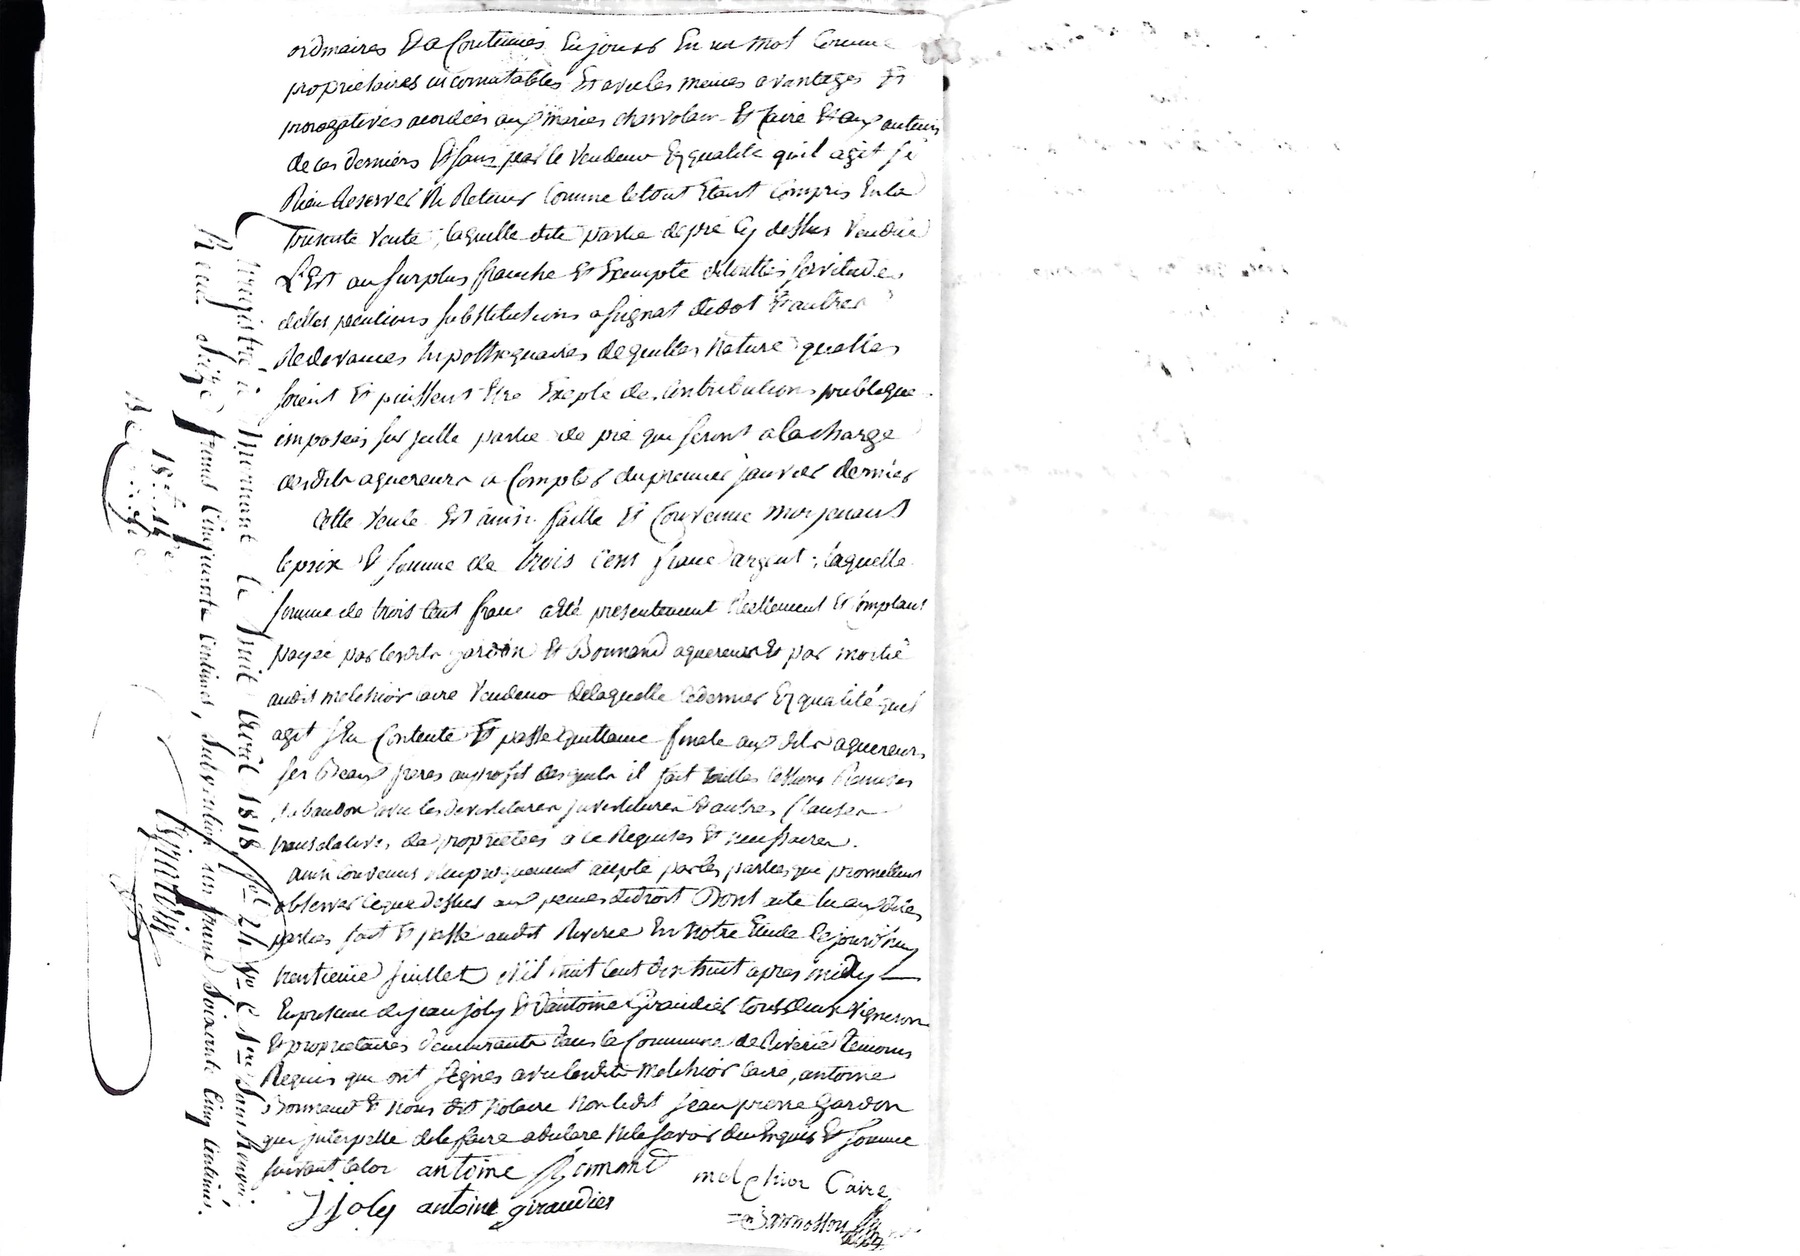 ordinaires Et a Coutumés En jouir En un mot Comme
proprietaires incomutables Et avec les memes avantages Et
prorogatives acordées aux maries chervolain Et Caire Et aux auteurs
de ces derniers Et sans par le Vendeur Ez qualité qu'il agit se
Rien Reserver Ni Retenir Comme le tout Etant Compris En la
presente Vente, laquelle dite partie de pré Cy dessus Vendue
L'Est au surplus franche Et Exempte de touttes servitudes
dettes pentions substitutions assignat de dot Et autres
Redevances hipothequaires de quelles Nature quelles
soient Et puissent Etre Exepté des Contributions publique
imposées sur jcelle partie de pré qui seront a la charge
desdits aquereurs a Compter du premier janvier dernier
Cette Vente Est ainsi faitte Et Convenue moyenant
le prix Et somme de trois Cent franc d'argent, laquelle
somme de trois Cent franc a été presentement Réellement Et Comptant
payée par lesdits gardon Et Bonnand aquereurs Et par moitié
audit melchior Caire Vendeur de laquelle Ce dernier Ez qualité qu'il
agit s'En Contente Et passe quittance finale aux dits aquereurs
ses Beaux freres au profit desquels il fait touttes Cessions Remises
abandon avec les devestitures jnvestitures Et autres Clauses
translatives de proprietées a ce Requises Et necessaires.
Ainsi Convenu Reciproquement accepté par les parties qui promettent
observer Ce que dessus aux peines de droit Dont acte lu aux dites
parties fait Et passé audit Riverie En Notre Etude Ce jourd'huy
trentieme juillet mil huit Cent dix huit apres midy
En presence de jean joly Et d'antoine Giraudier tous deux Vigneron
Et proprietaires demeurants dans la Commune de Riverie temoins
Requis qui ont signés avec lesdits melchior Caire, antoine
Bonnand Et Nous dit Notaire Non ledit jean pierre Gardon
qui jnterpellé de le faire a declaré Ne le savoir de ce Enquis Et sommé
suivant la loi antoine Bonnand melchior Caire
J joly antoine giraudier
Enregistré à Mornant le huit Août 1818 fol. 24 Vo. C. 1re sans Renvoi.
Reçu seize francs Cinquante Centimes, subvention un franc soixante Cinq Centimes.